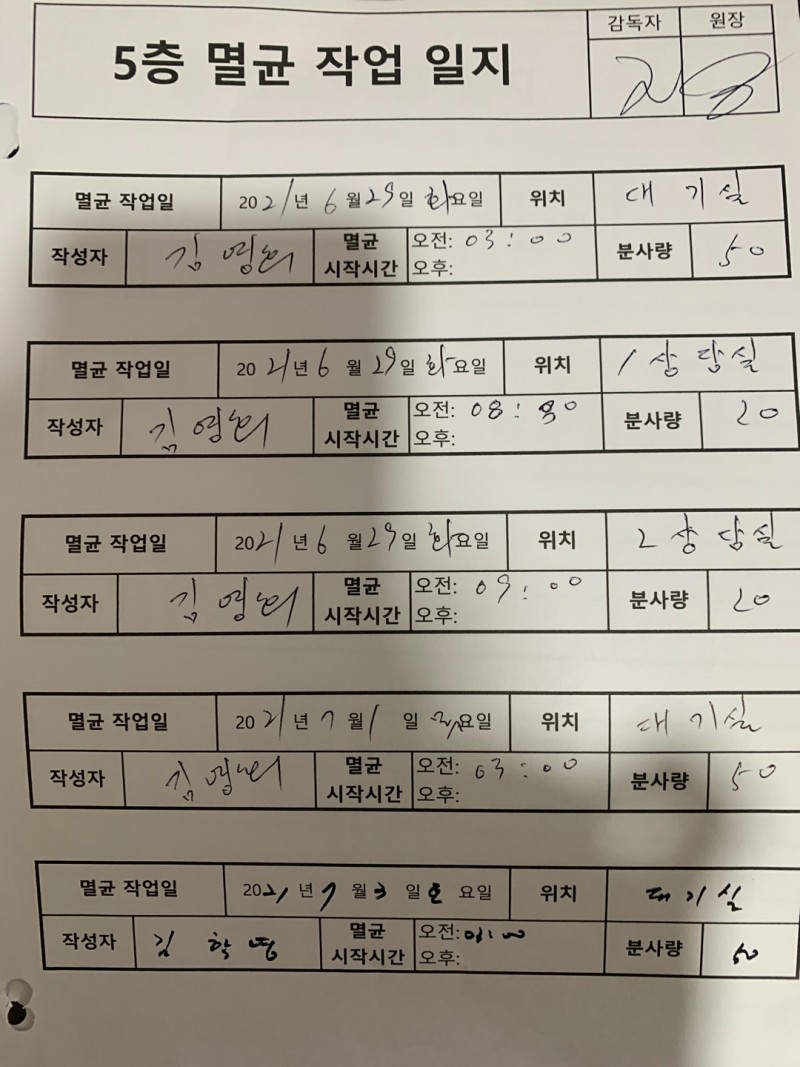 5층 멸균 작업 일지
감독자 원장
멸균 작업일 2021년 6월 29일 화요일 위치 대기실
작성자 김영희 멸균 시작시간 오전: 03:00 오후: 분사량 50
멸균 작업일 2021년 6월 29일 화요일 위치 1상담실
작성자 김영희 멸균 시작시간 오전: 08:30 오후: 분사량 20
멸균 작업일 2021년 6월 29일 화요일 위치 2상담실
작성자 김영희 멸균 시작시간 오전: 09:00 오후: 분사량 20
멸균 작업일 2021년 7월 1일 요일 위치 대기실
작성자 김영희 멸균 시작시간 오전: 03:00 오후: 분사량 50
멸균 작업일 2021년 7월 3일 토요일 위치 대기실
작성자 김학명 멸균 시작시간 오전: 오후: 분사량 50